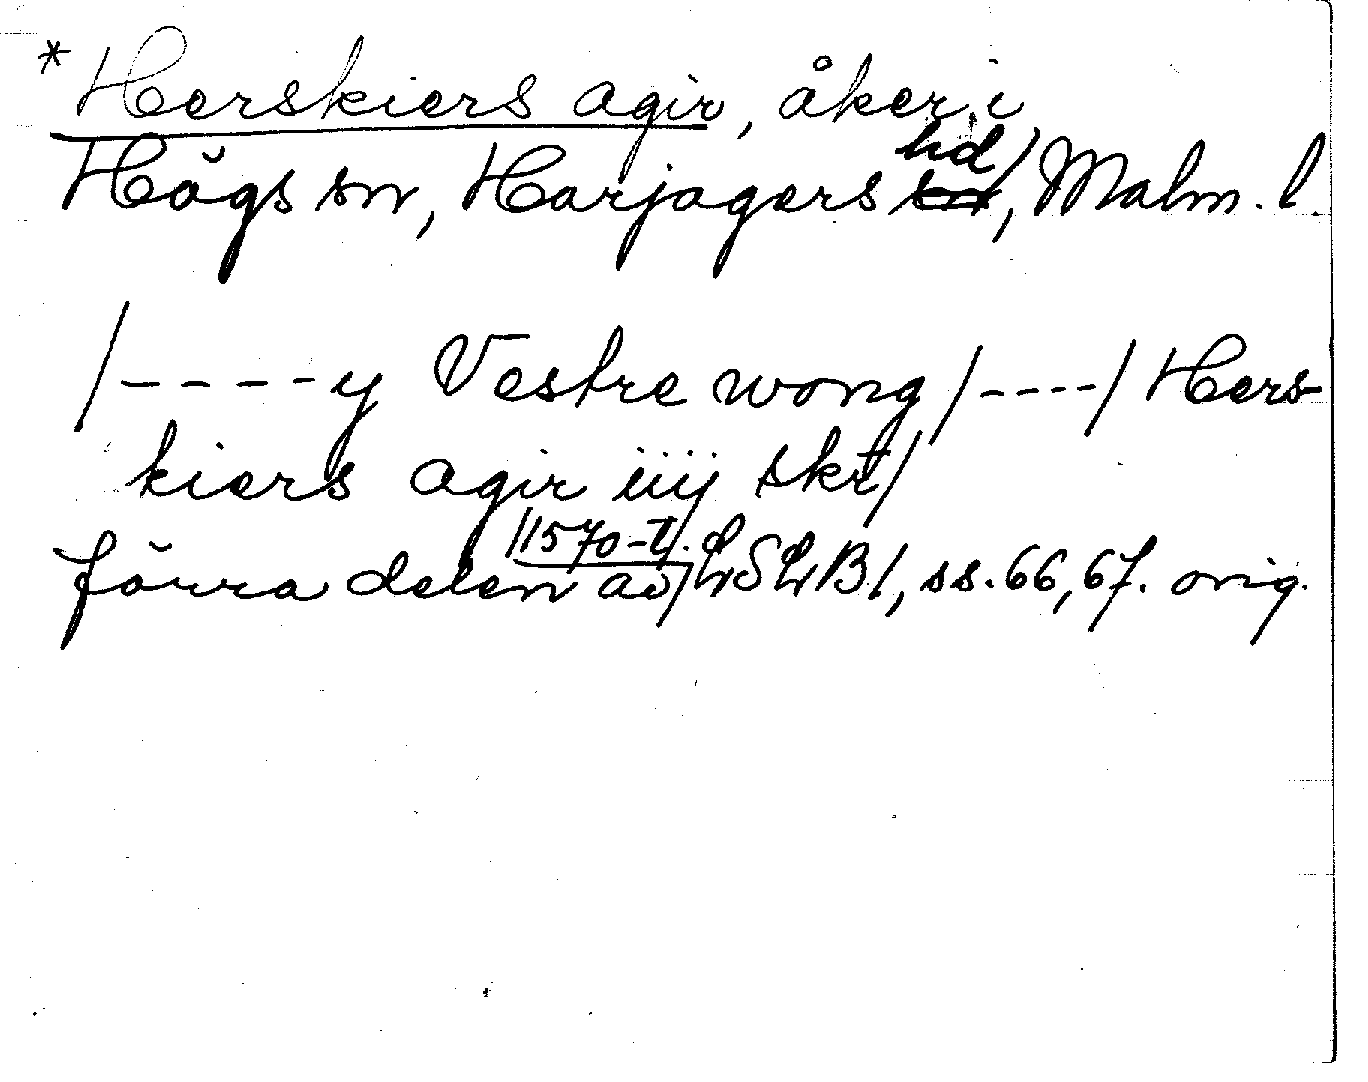 *Herskiers agir, åker i
Högs sn, Harjagers hd, Malm. l.
/----y Vestre wong/----/Hers-
kiers agir iiij skt/
förra delen av /1570-t/. LSLB1, ss. 66, 67. orig.